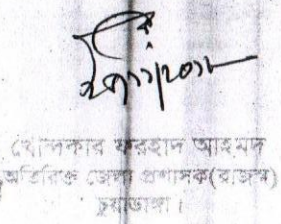 খোন্দকার ফরহাদ আহমদ
অতিরিক্ত জেলা প্রশাসক(রাজস্ব)
চুয়াডাঙ্গা।